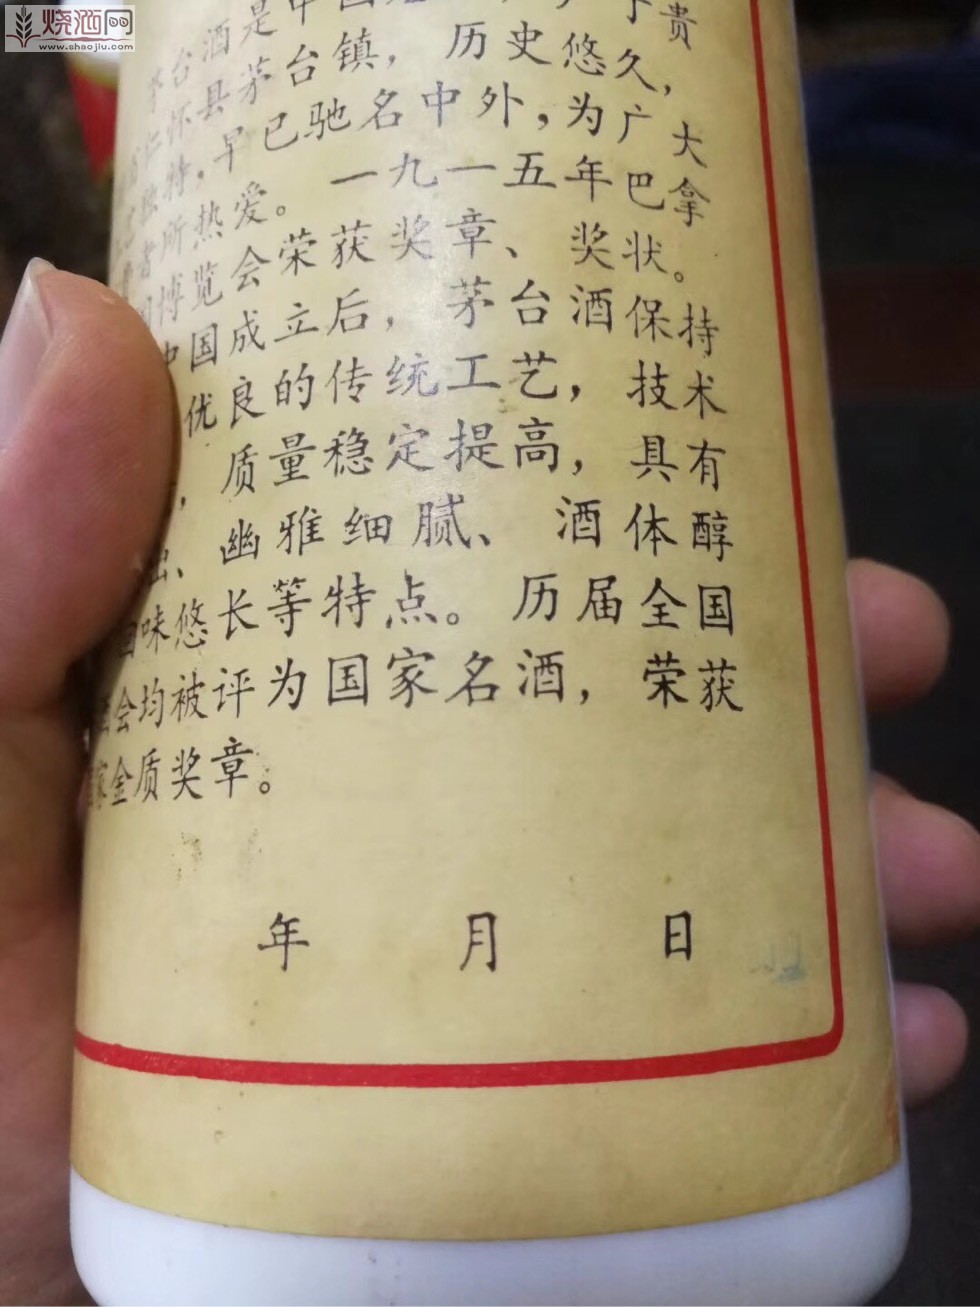 烧酒网
www.shaojiu.com
茅台酒是中国
怀县茅台镇，历史悠久，
独特，早已驰名中外，为广大
者所热爱。一九一五年巴拿
国博览会荣获奖章、奖状。
中国成立后，茅台酒保持
优良的传统工艺，技术
，质量稳定提高，具有
出、幽雅细腻、酒体醇
回味悠长等特点。历届全国
酒会均被评为国家名酒，荣获
国家金质奖章。
年 月 日